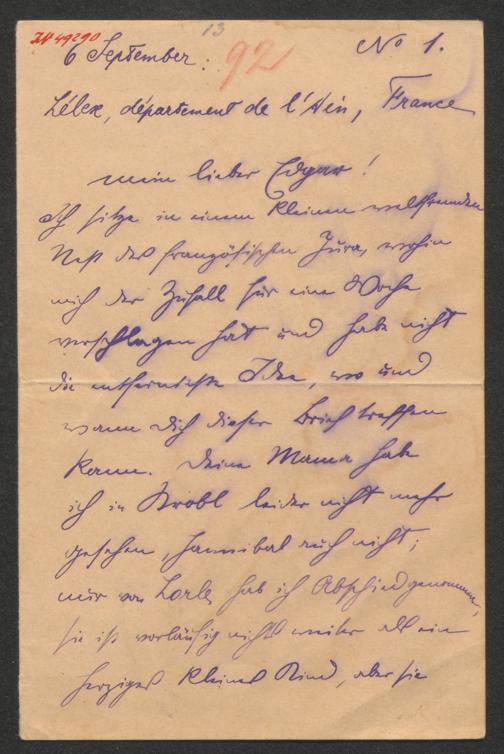 13
IN 49290
6 September: 92 No 1.
Lélex, département de l'Ain, France
mein lieber Edgar!
Ich sitze in einem kleinen weltfremden
Nest des französischen Jura, wohin
mich der Zufall für eine Woche
verschlagen hat und habe nicht
die entfernteste Idee, wo und
wann Dich dieser Brief treffen
kann. Deine Mama habe
ich in Strobl leider nicht mehr
gesehen, Hannibal auch nicht;
nur von Lorle hab ich Abschied genommen,
sie ist vorläufig nichts weiter als ein
herziges kleines Kind, aber sie